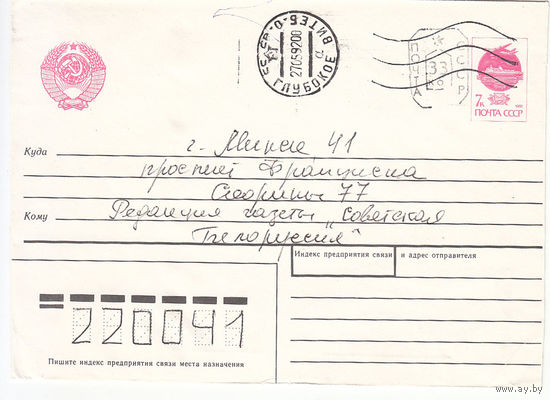 ГЛУБОКОЕ ВИТЕБ-О
270592 00
ПОЧТА
СССР
33
7к
ПОЧТА СССР
Куда
г. Минск 41
проспект Франциска
Скорины 77
Кому
Редакция газеты „Советская
Белоруссия"
Индекс предприятия связи и адрес отправителя
220041
Пишите индекс предприятия связи места назначения
www.ay.by